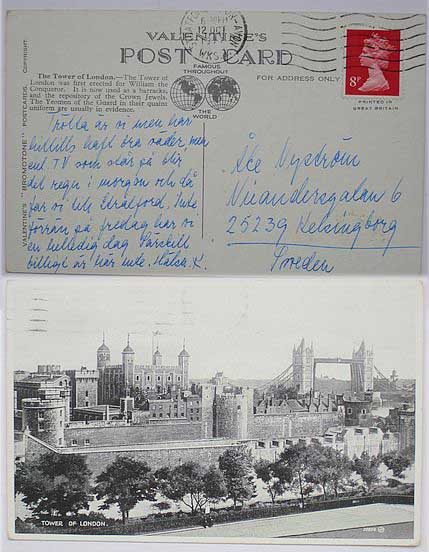 VALENTINE'S
POST CARD
FAMOUS THROUGHOUT
THE WORLD
FOR ADDRESS ONLY
PRINTED IN
GREAT BRITAIN
8P
The Tower of London.—The Tower of
London was first erected for William the
Conqueror. It is now used as a barracks,
and the repository of the Crown Jewels.
The Yeomen of the Guard in their quaint
uniform are usually in evidence.
VALENTINE'S "BROMOTONE" POSTCARDS. COPYRIGHT.
Trötta är vi men har
hittills haft bra väder, men
enl. TV som står på blir
det regn i morgon och då
far vi till Stratford. Inte
förrän på fredag har vi
en helledig dag. Särskilt
billigt är här inte. Hälsn. K.
Åke Nyström
Wieandersgatan 6
25239 Helsingborg
Sweden
TOWER OF LONDON.